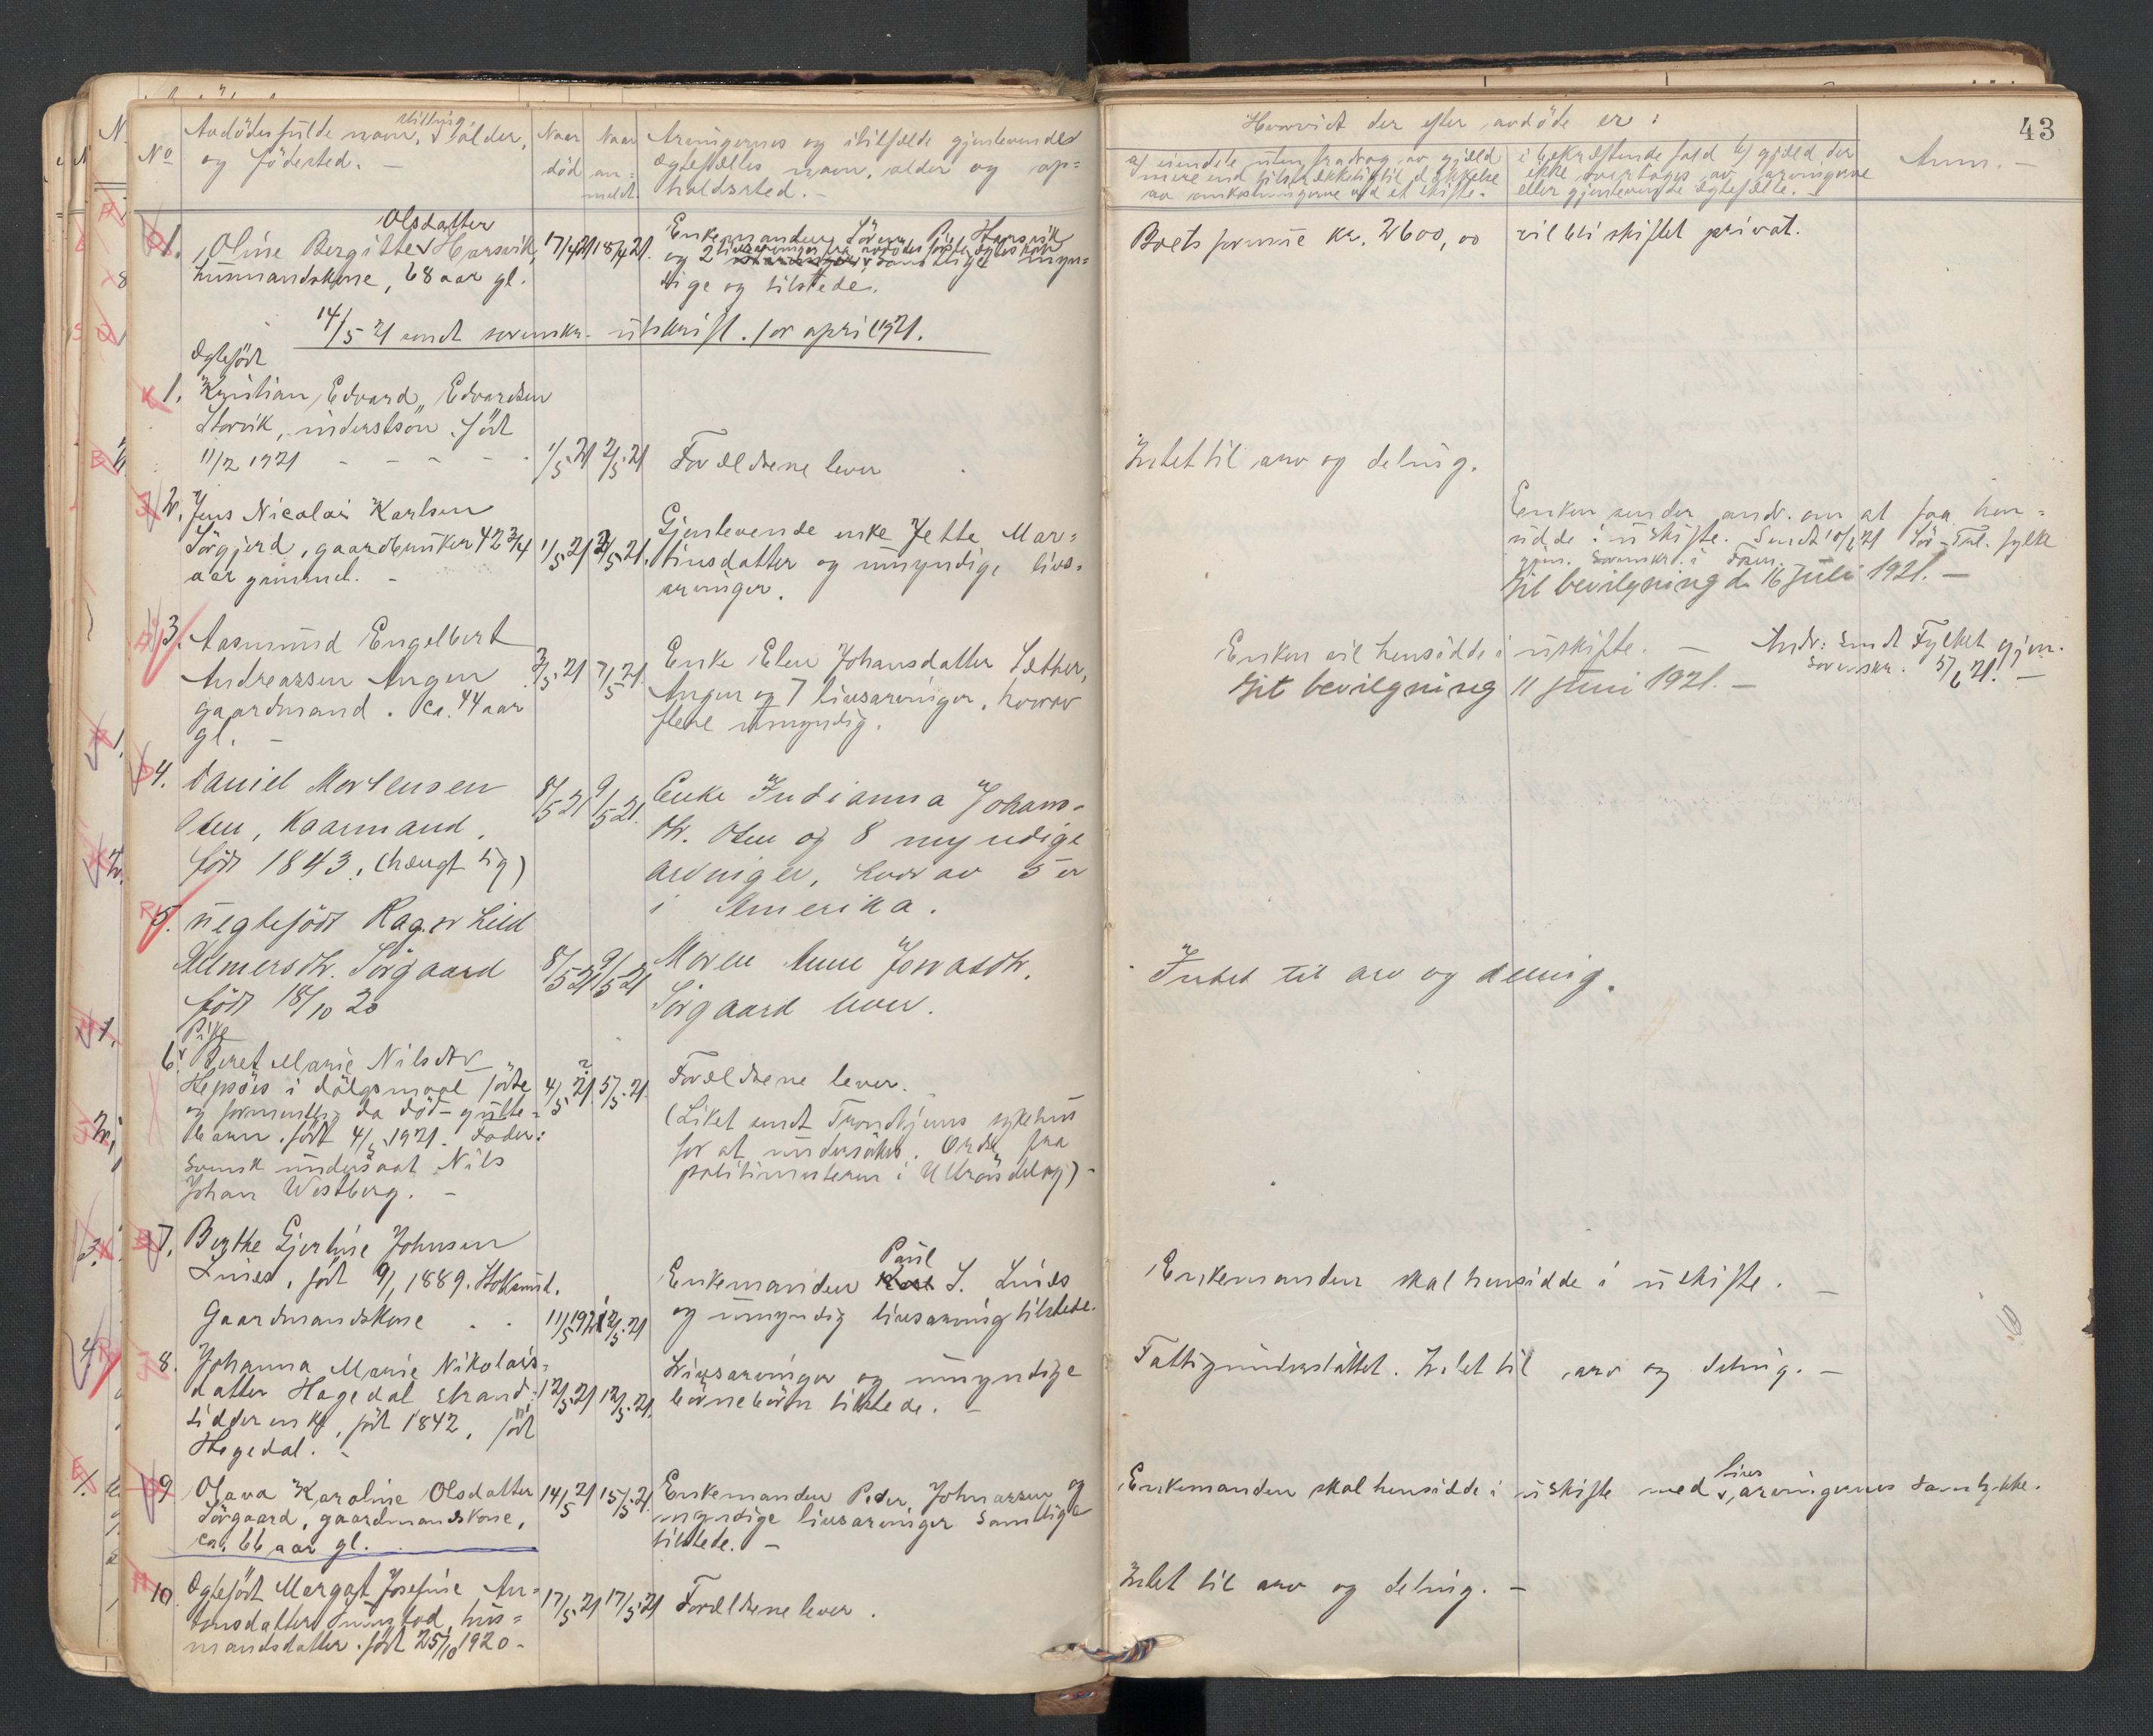 43
No
Avdödes fulde navn, stilling, alder,
og födested. -
Naar
död
Naar
an=
meldt.
Arvingernes og i tilfælde gjenlevendes
Ægtefælles navn, alder og op=
holdssted. -
Hvorvidt der efter avdöde er:
a) eiendele uten fradrag av gjæld
mere end tilstrækkelig til dækkelse
av omkostningerne ved et skifte.
i bekræftende fald b) gjæld der
ikke overtages av arvingerne
eller gjenlevende ægtefælle. -
Anm. -
1. Oline Bergitte Olsdatter Harsvik,
husmandskone, 68 aar gl.
17/4 21 18/4 21.
Enkemanden Sören P. Harsvik
og 2 livsarvinger fra avdödes förste egteskap samtlige myn=
dige og tilstede.
Boets formue kr. 2600,00 vil bli skiftet privat.
14/5 21 sendt sorenskr. utskrift for april 1921.
Ægtefödt
1. Kristian Edvard Edvardsen
Storvik, inderstsön. födt
11/2 1921 - - - - -
1/5 21 2/5 21 Forældrene lever
Intet til arv og deling.
2. Jens Nicolai Karlsen
Sörgjerd, gaardbruker 42 3/4
aar gammel. -
1/5 21 3/5 21.
Gjenlevende enke Jette Mar=
tinsdatter og umyndige livs=
arvinger.
Enken sender andr. om at faa hen=
sidde i uskifte. Sendt 10/6 21 Sör-Trl. fylke
gjen. Sorenskr. i Fosen.
Git bevilgning d. 16 juli 1921. -
3. Aasmund Engelbert
Andreassen Angen
gaardmand. ca. 44 aar
gl. -
3/5 21 7/5 21.
Enke Elen Johansdatter Sæther,
Angen og 7 livsarvinger, hvorav
flere umyndig.
Enken vil hensidde i uskifte. -
Git bevilgning 11 juni 1921. -
Andr. sendt Fylket gjen.
Sorenskr. 5/6 21. -
4. Daniel Mortensen
Osen, Kaarmand,
födt 1843. (hængt sig)
8/5 21 9/5 21.
Enke Indianna Johans=
dtr. Osen og 8 myndige
arvinger, hvorav 5 er
i Amerika.
5. uegtefödt Ragnhild
Elmersdtr. Sörgaard
födt 18/10 20
8/5 21 9/5 21
Moren Anne Jonasdtr.
Sörgaard lever.
Intet til arv og deling.
Pike
6. Beret Marie Nilsdtr
Hepsöes i dölgsmaal födte
og formentlig da död- gutte=
barn. födt 4/5 1921. Fader:
svensk undersaat Nils
Johan Westberg. -
4/5 21? 5/5 21.
Forældrene lever.
(Liket sendt Trondhjems sykehus
for at undersökes. Ordre fra
politimesteren i Uttröndelag) -
7. Berthe Gjertine Johnsen
Lines, födt 9/1 1889. Stoksund.
Gaardmandskone . .
11/5 1921 12/5 21
Enkemanden Paul S. Lines
og umyndig livsarving tilstede.
Enkemanden skal hensidde i uskifte. -
8. Johanna Marie Nikolais=
datter Hagedal strand=
sidderenke, födt 1842, födt
Hagedal. -
12/5 21 12/5 21.
Livsarvinger og umyndige
börnebörn tilstede. -
Fattigunderstöttet. Intet til arv og deling. -
9 Olava Karoline Olsdatter
Sörgaard, gaardmandskone,
ca. 66 aar gl.
14/5 21 15/5 21.
Enkemanden Peder Johnassen og
myndige livsarvinger samtlige
tilstede. -
Enkemanden skal hensidde i uskifte med livsarvingernes samtykke.
10. Ægtefödt Margot Josefine An=
tonsdatter hus=
mandsdatter. födt 25/10 1920 -
17/5 21 17/5 21 Forældrene lever.
Intet til arv og deling. -